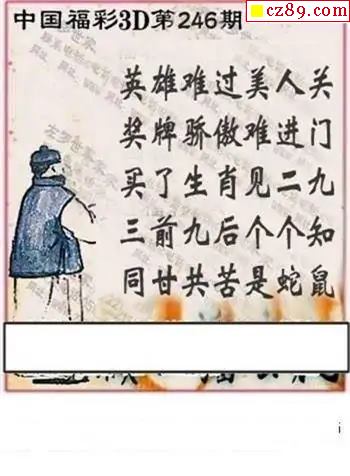 cz89.com
中国福彩3D第246期
英雄难过美人关
奖牌骄傲难进门
买了生肖见二九
三前九后个个知
同甘共苦是蛇鼠
i